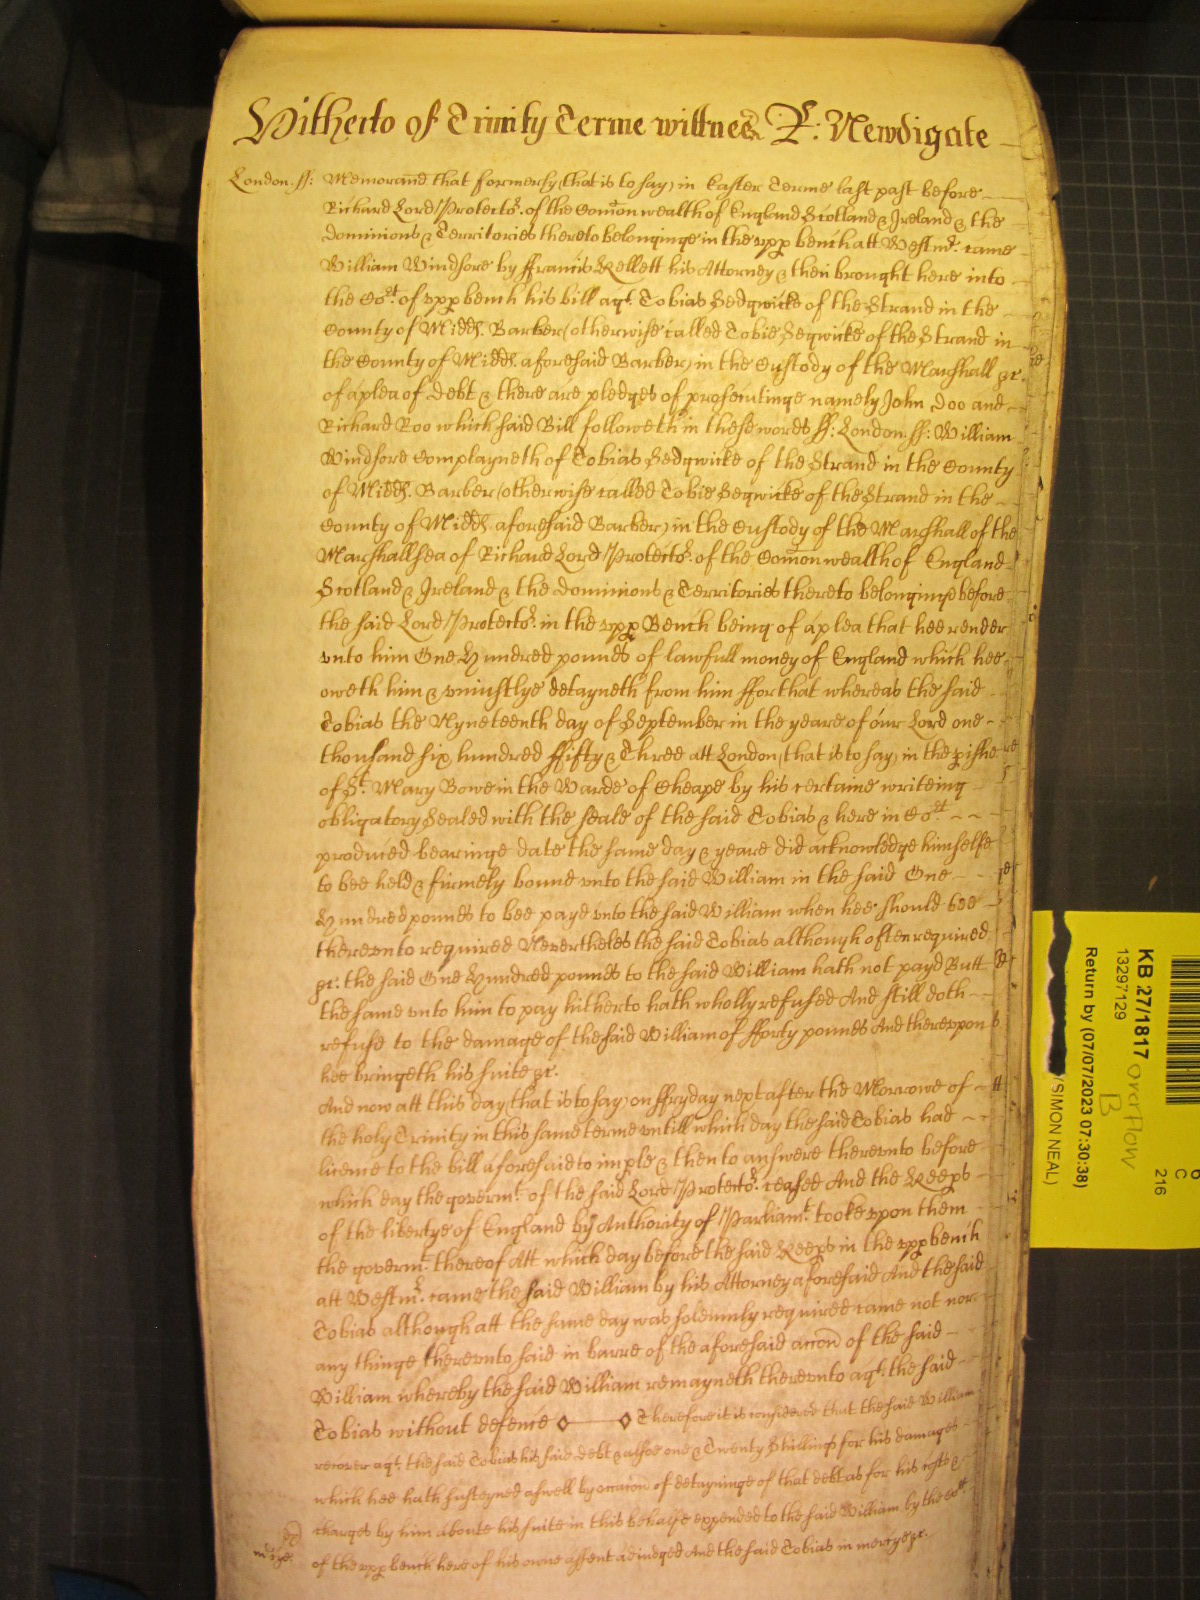 Hitherto of Trinity Terme wittnes R: Newdigate
London. ss: Memorand that formerly (that is to say) in Easter Terme last past before
Richard Lord Protector. of the Comon wealth of England Scotland & Ireland & the
dominions & Territories thereto belonginge in the upp bench att Westmr. came
William Windsore by ffrancis Kellett his Attorney & then brought here into
the Cort. of upp bench his bill agt. Tobias Sedgwicke of the Strand in the
County of Midds. Barber (otherwise called Tobie Segwicke of the Strand in
the County of Midds. aforesaid Barber) in the Custody of the Marshall &c.
of a plea of debt & there are pledges of prosecutinge namely John Doo and
Richard Roo which said Bill followeth in these words ss: London. ss: William
Windsore Complayneth of Tobias Sedgwicke of the Strand in the County
of Midds. Barber (otherwise called Tobie Segwicke of the Strand in the
County of Midds. aforesaid Barber) in the Custody of the Marshall of the
Marshallsea of Richard Lord Protector. of the Comon wealth of England
Scotland & Ireland & the dominions & Territories thereto belonginge before
the said Lord Protector. in the upp Bench being of a plea that hee render
unto him One Hundred pounds of lawfull money of England which hee
oweth him & uniustlye detayneth from him ffor that whereas the said
Tobias the Nyneteenth day of September in the yeare of our Lord one
thousand six hundred ffifty & Three att London (that is to say) in the pishe
of St. Mary Bowe in the Warde of Cheape by his certaine writeing
obligatory Sealed with the seale of the said Tobias & here in Cort.
produced bearinge date the same day & yeare did acknowledge himselfe
to bee held & firmely bound unto the said William in the said One
Hundred pounds to bee payd unto the said William when hee should bee
thereunto required Neverthelesse the said Tobias although often required
&c: the said One Hundred pounds to the said William hath not payd Butt
the same unto him to pay hitherto hath wholly refused And still doth
refuse to the damage of the said William of fforty pounds And thereupon
hee bringeth his suite &c.
And now att this day (that is to say) on ffryday next after the Morrowe of
the holy Trinity in this same terme untill which day the said Tobias had
licence to the bill aforesaid to imple & then to answere thereunto before
which day the govermt. of the said Lord Protector. ceased And the Keeps
of the libertye of England by Authority of Parliamt. tooke upon them
the govermt. thereof Att which day before the said Keeps in the upp bench
att Westmr. came the said William by his Attorney aforesaid And the said
Tobias although att the same day was solemnly required came not nor
any thinge thereunto said in barre of the aforesaid accon of the said
William whereby the said William remayneth thereunto agt. the said
Tobias without defence Therefore it is considered that the said William
recover agt. the said Tobias his said debt & alsoe one & Twenty Shillings for his damages
which hee hath susteyned aswell by occacion of detayninge of that debt as for his costs &
charges by him aboute his suite in this behalfe expended to the said William by the Cort.
of the upp bench here of his owne assent adiudged And the said Tobias in mercye &c.
KB 27/1817 overflow
B
13297129
Return by (07/07/2023 07:30:38)
(SIMON NEAL)
C
216